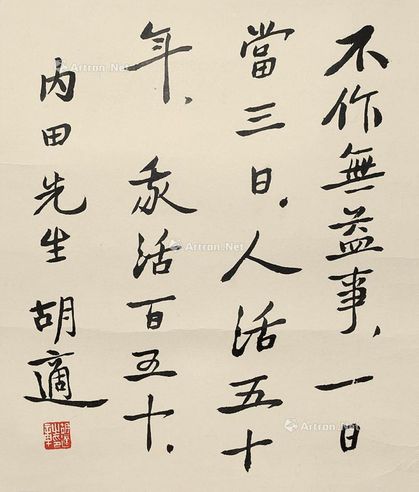 不作無益事、一日
當三日。人活五十
年、我活百五十。
内田先生 胡適
Artron.Net
Artron.Net
Artron.Net
Artron.Net